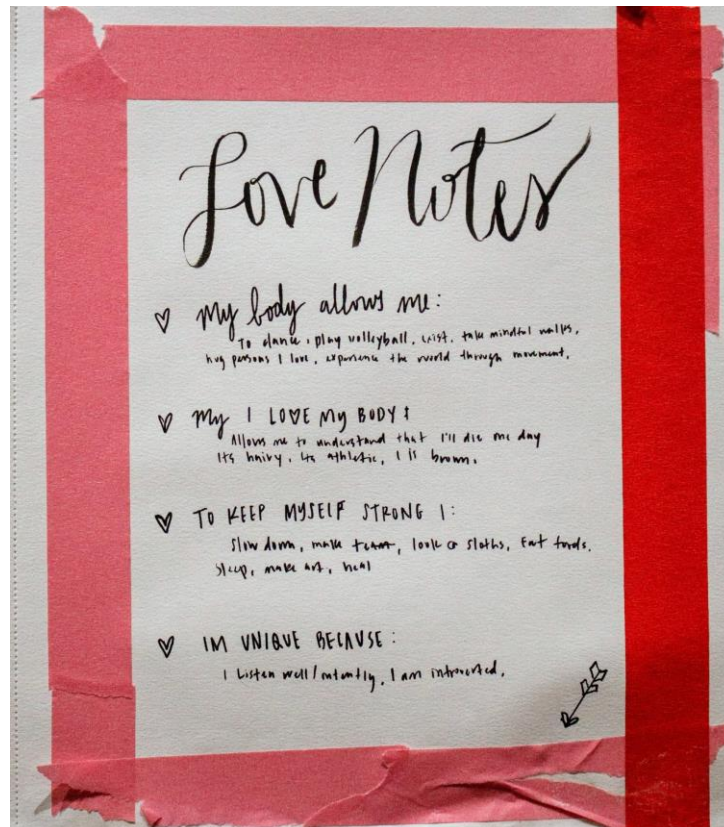 Love Notes
My body allows me:
To dance, play volleyball, exist, take mindful walks,
hug persons I love, experience the world through movement.
My I LOVE My BODY:
Allows me to understand that I'll die one day
Its hairy, its athletic, is brown.
TO KEEP MYSELF STRONG I:
Slow down, make, look @ sloths, Eat foods.
Sleep, make art, heal
IM UNIQUE BECAUSE:
I Listen well/intently, I am introverted.